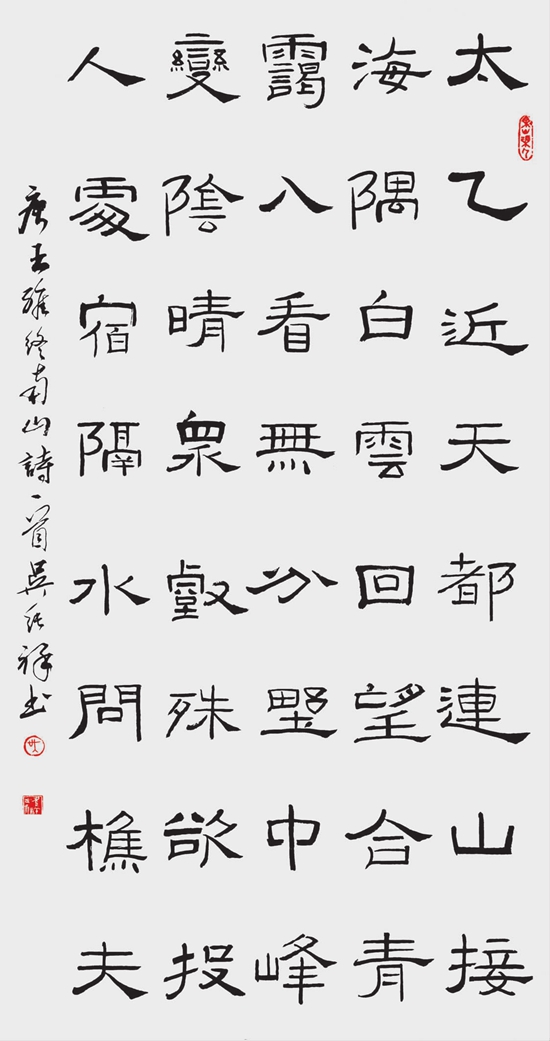 太乙近天都連山接
海隅白雲回望合青
靄入看無分野中峰
變陰晴衆壑殊欲投
人處宿隔水問樵夫
唐王維終南山詩一首吳祥書